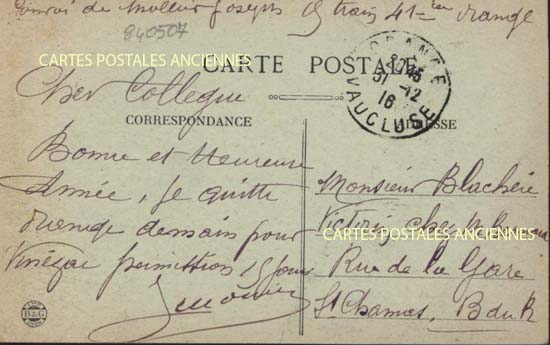 Envoi de Joseph train 41 Orange
840507
CARTES POSTALES ANCIENNES
CARTE POSTALE
ORANGE
20 45
31 -12
16
VAUCLUSE
Cher Collegue
CORRESPONDANCE
ADRESSE
Bonne et Heureuse
Année, Je quitte
Orange demain pour
permission 15 jours
Monsieur Blachère
Victor, chez
CARTES POSTALES ANCIENNES
Rue de la Gare
St Chamas, B du R
B&G